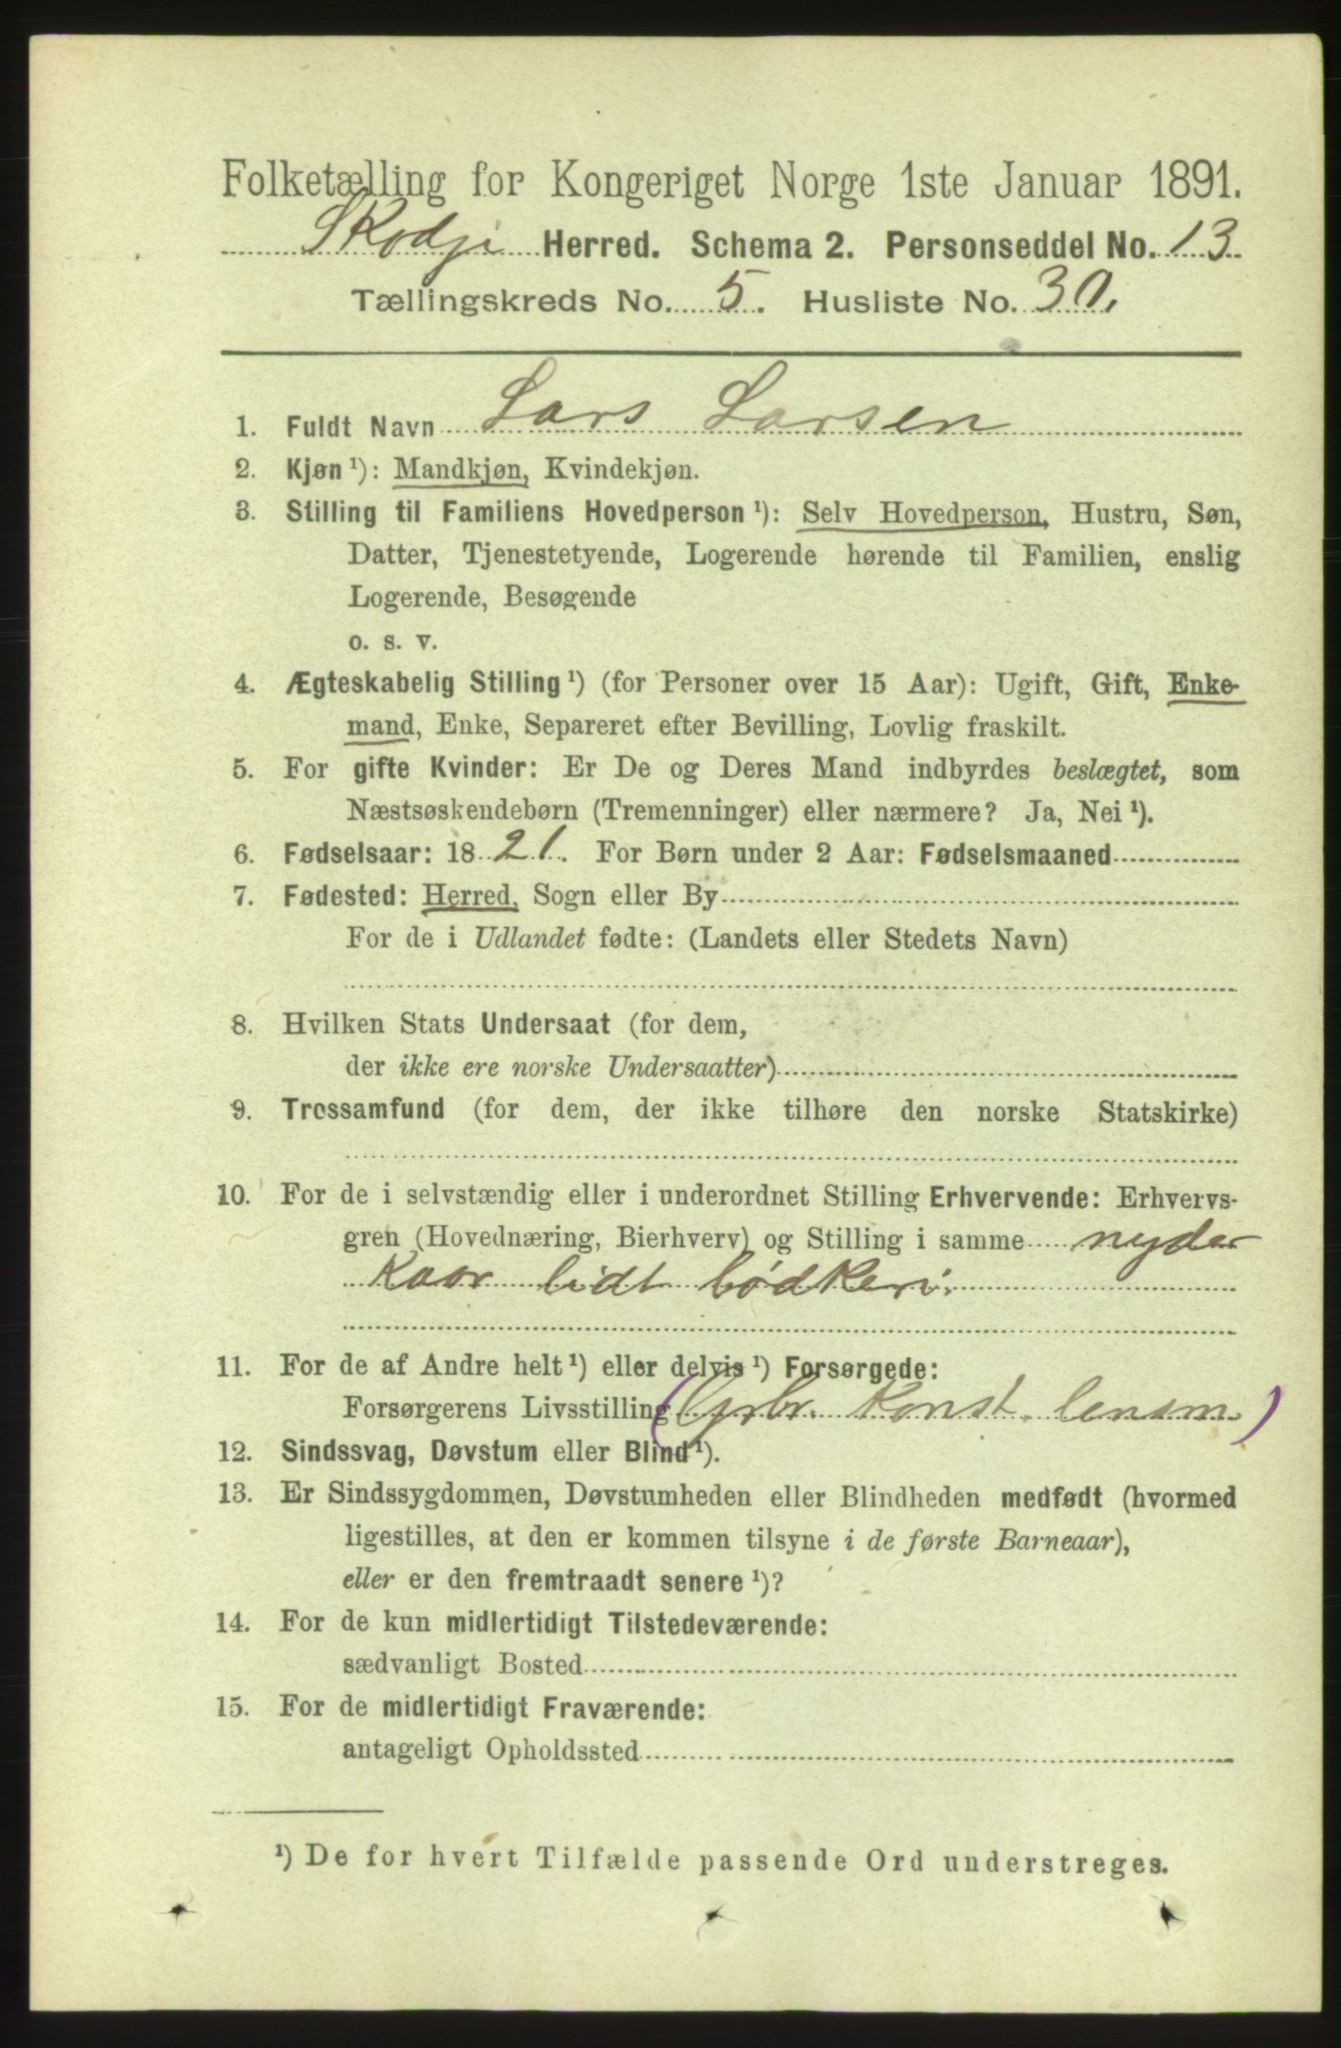 Folketælling for Kongeriget Norge 1ste Januar 1891.
Skodje Herred. Schema 2. Personseddel No. 13
Tællingskreds No. 5. Husliste No. 30.
1. Fuldt Navn Lars Larsen
2. Kjøn ¹): Mandkjøn, Kvindekjøn.
3. Stilling til Familiens Hovedperson ¹): Selv Hovedperson, Hustru, Søn,
Datter, Tjenestetyende, Logerende hørende til Familien, enslig
Logerende, Besøgende
o. s. v.
4. Ægteskabelig Stilling ¹) (for Personer over 15 Aar): Ugift, Gift, Enke-
mand, Enke, Separeret efter Bevilling, Lovlig fraskilt.
5. For gifte Kvinder: Er De og Deres Mand indbyrdes beslægtet, som
Næstsøskendebørn (Tremenninger) eller nærmere? Ja, Nei ¹).
6. Fødselsaar: 1821. For Børn under 2 Aar: Fødselsmaaned
7. Fødested: Herred, Sogn eller By
For de i Udlandet fødte: (Landets eller Stedets Navn)
8. Hvilken Stats Undersaat (for dem,
der ikke ere norske Undersaatter)
9. Trossamfund (for dem, der ikke tilhøre den norske Statskirke)
10. For de i selvstændig eller i underordnet Stilling Erhvervende: Erhvervs-
gren (Hovednæring, Bierhverv) og Stilling i samme nyder
Kaar lidt bødkeri.
11. For de af Andre helt ¹) eller delvis ¹) Forsørgede:
Forsørgerens Livsstilling (Grbr. Konst. lensm.)
12. Sindssvag, Døvstum eller Blind ¹).
13. Er Sindssygdommen, Døvstumheden eller Blindheden medfødt (hvormed
ligestilles, at den er kommen tilsyne i de første Barneaar),
eller er den fremtraadt senere ¹)?
14. For de kun midlertidigt Tilstedeværende:
sædvanligt Bosted
15. For de midlertidigt Fraværende:
antageligt Opholdssted
¹) De for hvert Tilfælde passende Ord understreges.